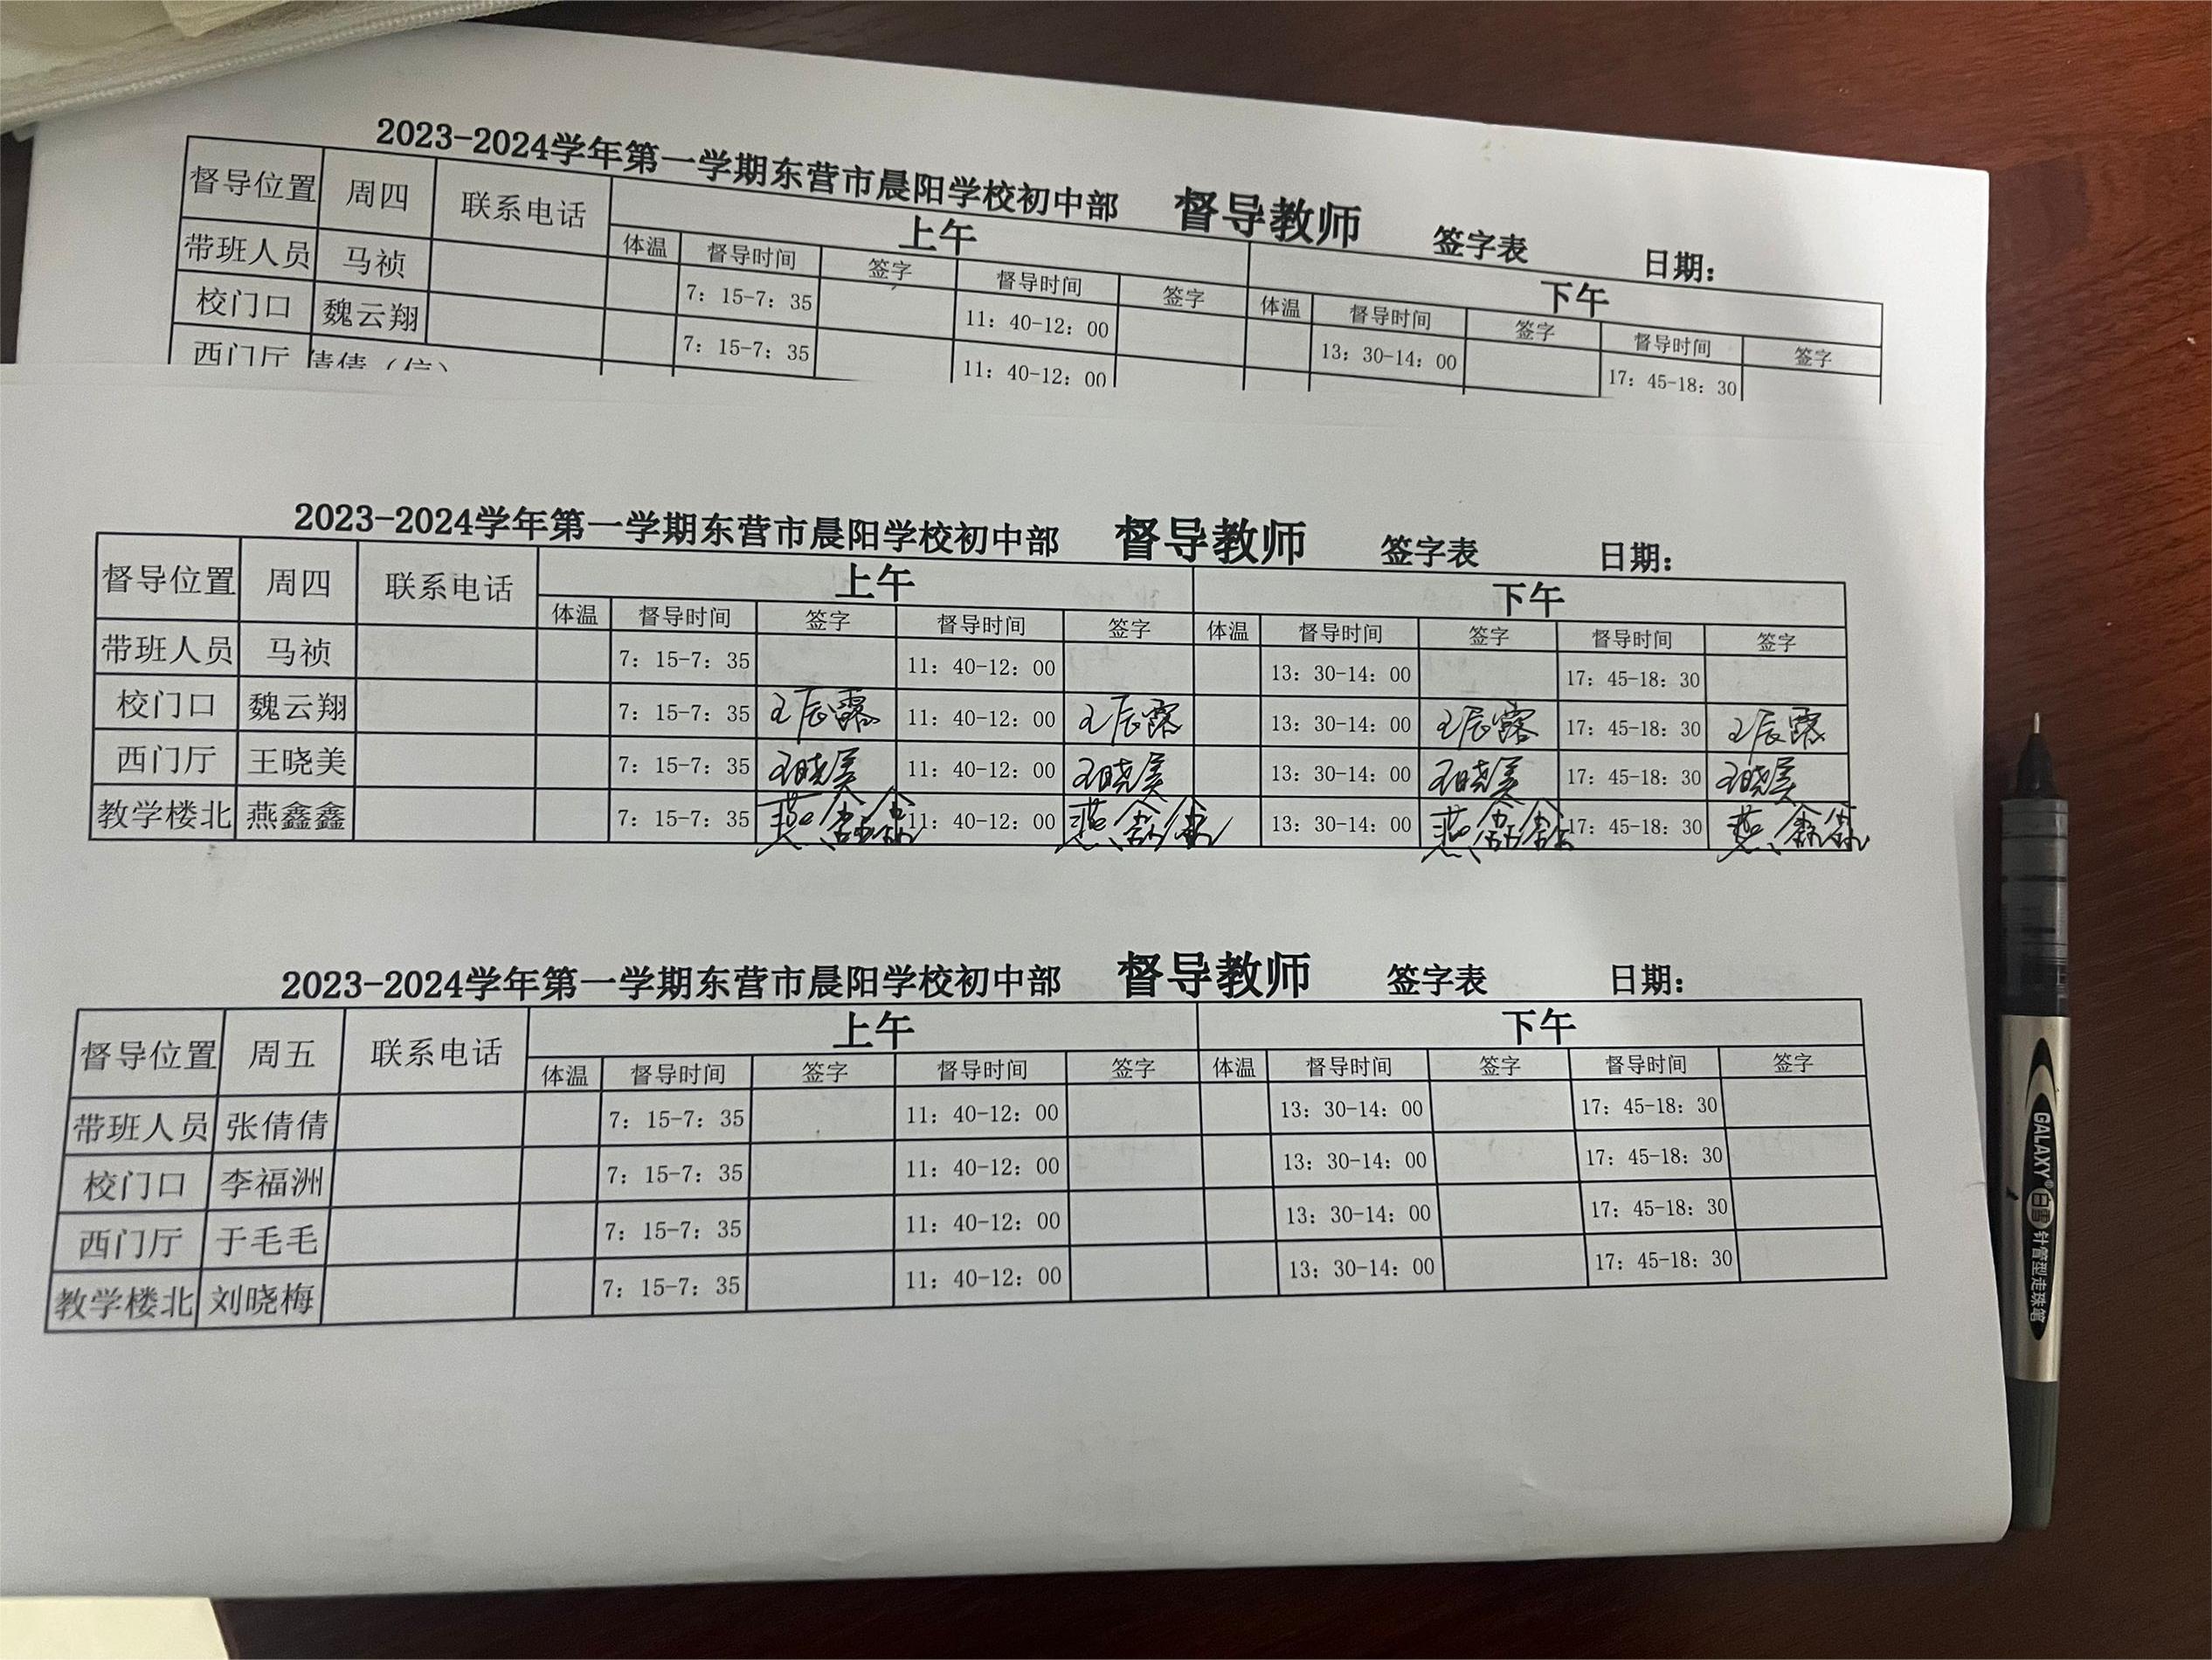 2023-2024学年第一学期东营市晨阳学校初中部 督导教师 签字表 日期：
督导位置 周四 联系电话 上午 下午
体温 督导时间 签字 督导时间 签字 体温 督导时间 签字 督导时间 签字
带班人员 马祯 7：15-7：35 11：40-12：00 13：30-14：00 17：45-18：30
校门口 魏云翔 7：15-7：35 11：40-12：00
西门厅 倩倩（信）
2023-2024学年第一学期东营市晨阳学校初中部 督导教师 签字表 日期：
督导位置 周四 联系电话 上午 下午
体温 督导时间 签字 督导时间 签字 体温 督导时间 签字 督导时间 签字
带班人员 马祯 7：15-7：35 11：40-12：00 13：30-14：00 17：45-18：30
校门口 魏云翔 7：15-7：35 王辰露 11：40-12：00 王辰露 13：30-14：00 王辰露 17：45-18：30 王辰露
西门厅 王晓美 7：15-7：35 王晓美 11：40-12：00 王晓美 13：30-14：00 王晓美 17：45-18：30 王晓美
教学楼北 燕鑫鑫 7：15-7：35 燕鑫鑫 11：40-12：00 燕鑫鑫 13：30-14：00 燕鑫鑫 17：45-18：30 燕鑫鑫
2023-2024学年第一学期东营市晨阳学校初中部 督导教师 签字表 日期：
督导位置 周五 联系电话 上午 下午
体温 督导时间 签字 督导时间 签字 体温 督导时间 签字 督导时间 签字
带班人员 张倩倩 7：15-7：35 11：40-12：00 13：30-14：00 17：45-18：30
校门口 李福洲 7：15-7：35 11：40-12：00 13：30-14：00 17：45-18：30
西门厅 于毛毛 7：15-7：35 11：40-12：00 13：30-14：00 17：45-18：30
教学楼北 刘晓梅 7：15-7：35 11：40-12：00 13：30-14：00 17：45-18：30
GALAXY® 白雪 针管型走珠笔